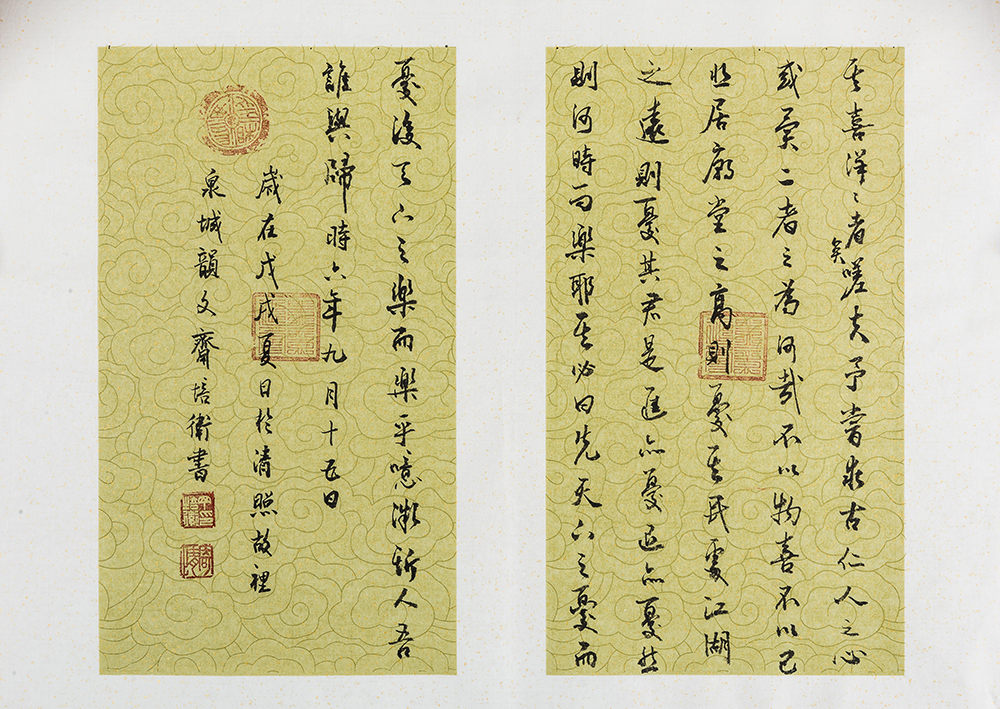 其喜洋〻者矣嗟夫予嘗求古仁人之心
或異二者之為何哉不以物喜不以己
悲居廟堂之高則憂其民處江湖
之遠則憂其君是進亦憂退亦憂然
則何時而樂耶其必曰先天下之憂而
憂後天下之樂而樂乎噫微斯人吾
誰與歸時六年九月十五日
歲在戊戌夏日於清照故裡
泉城韻文齋培衛書